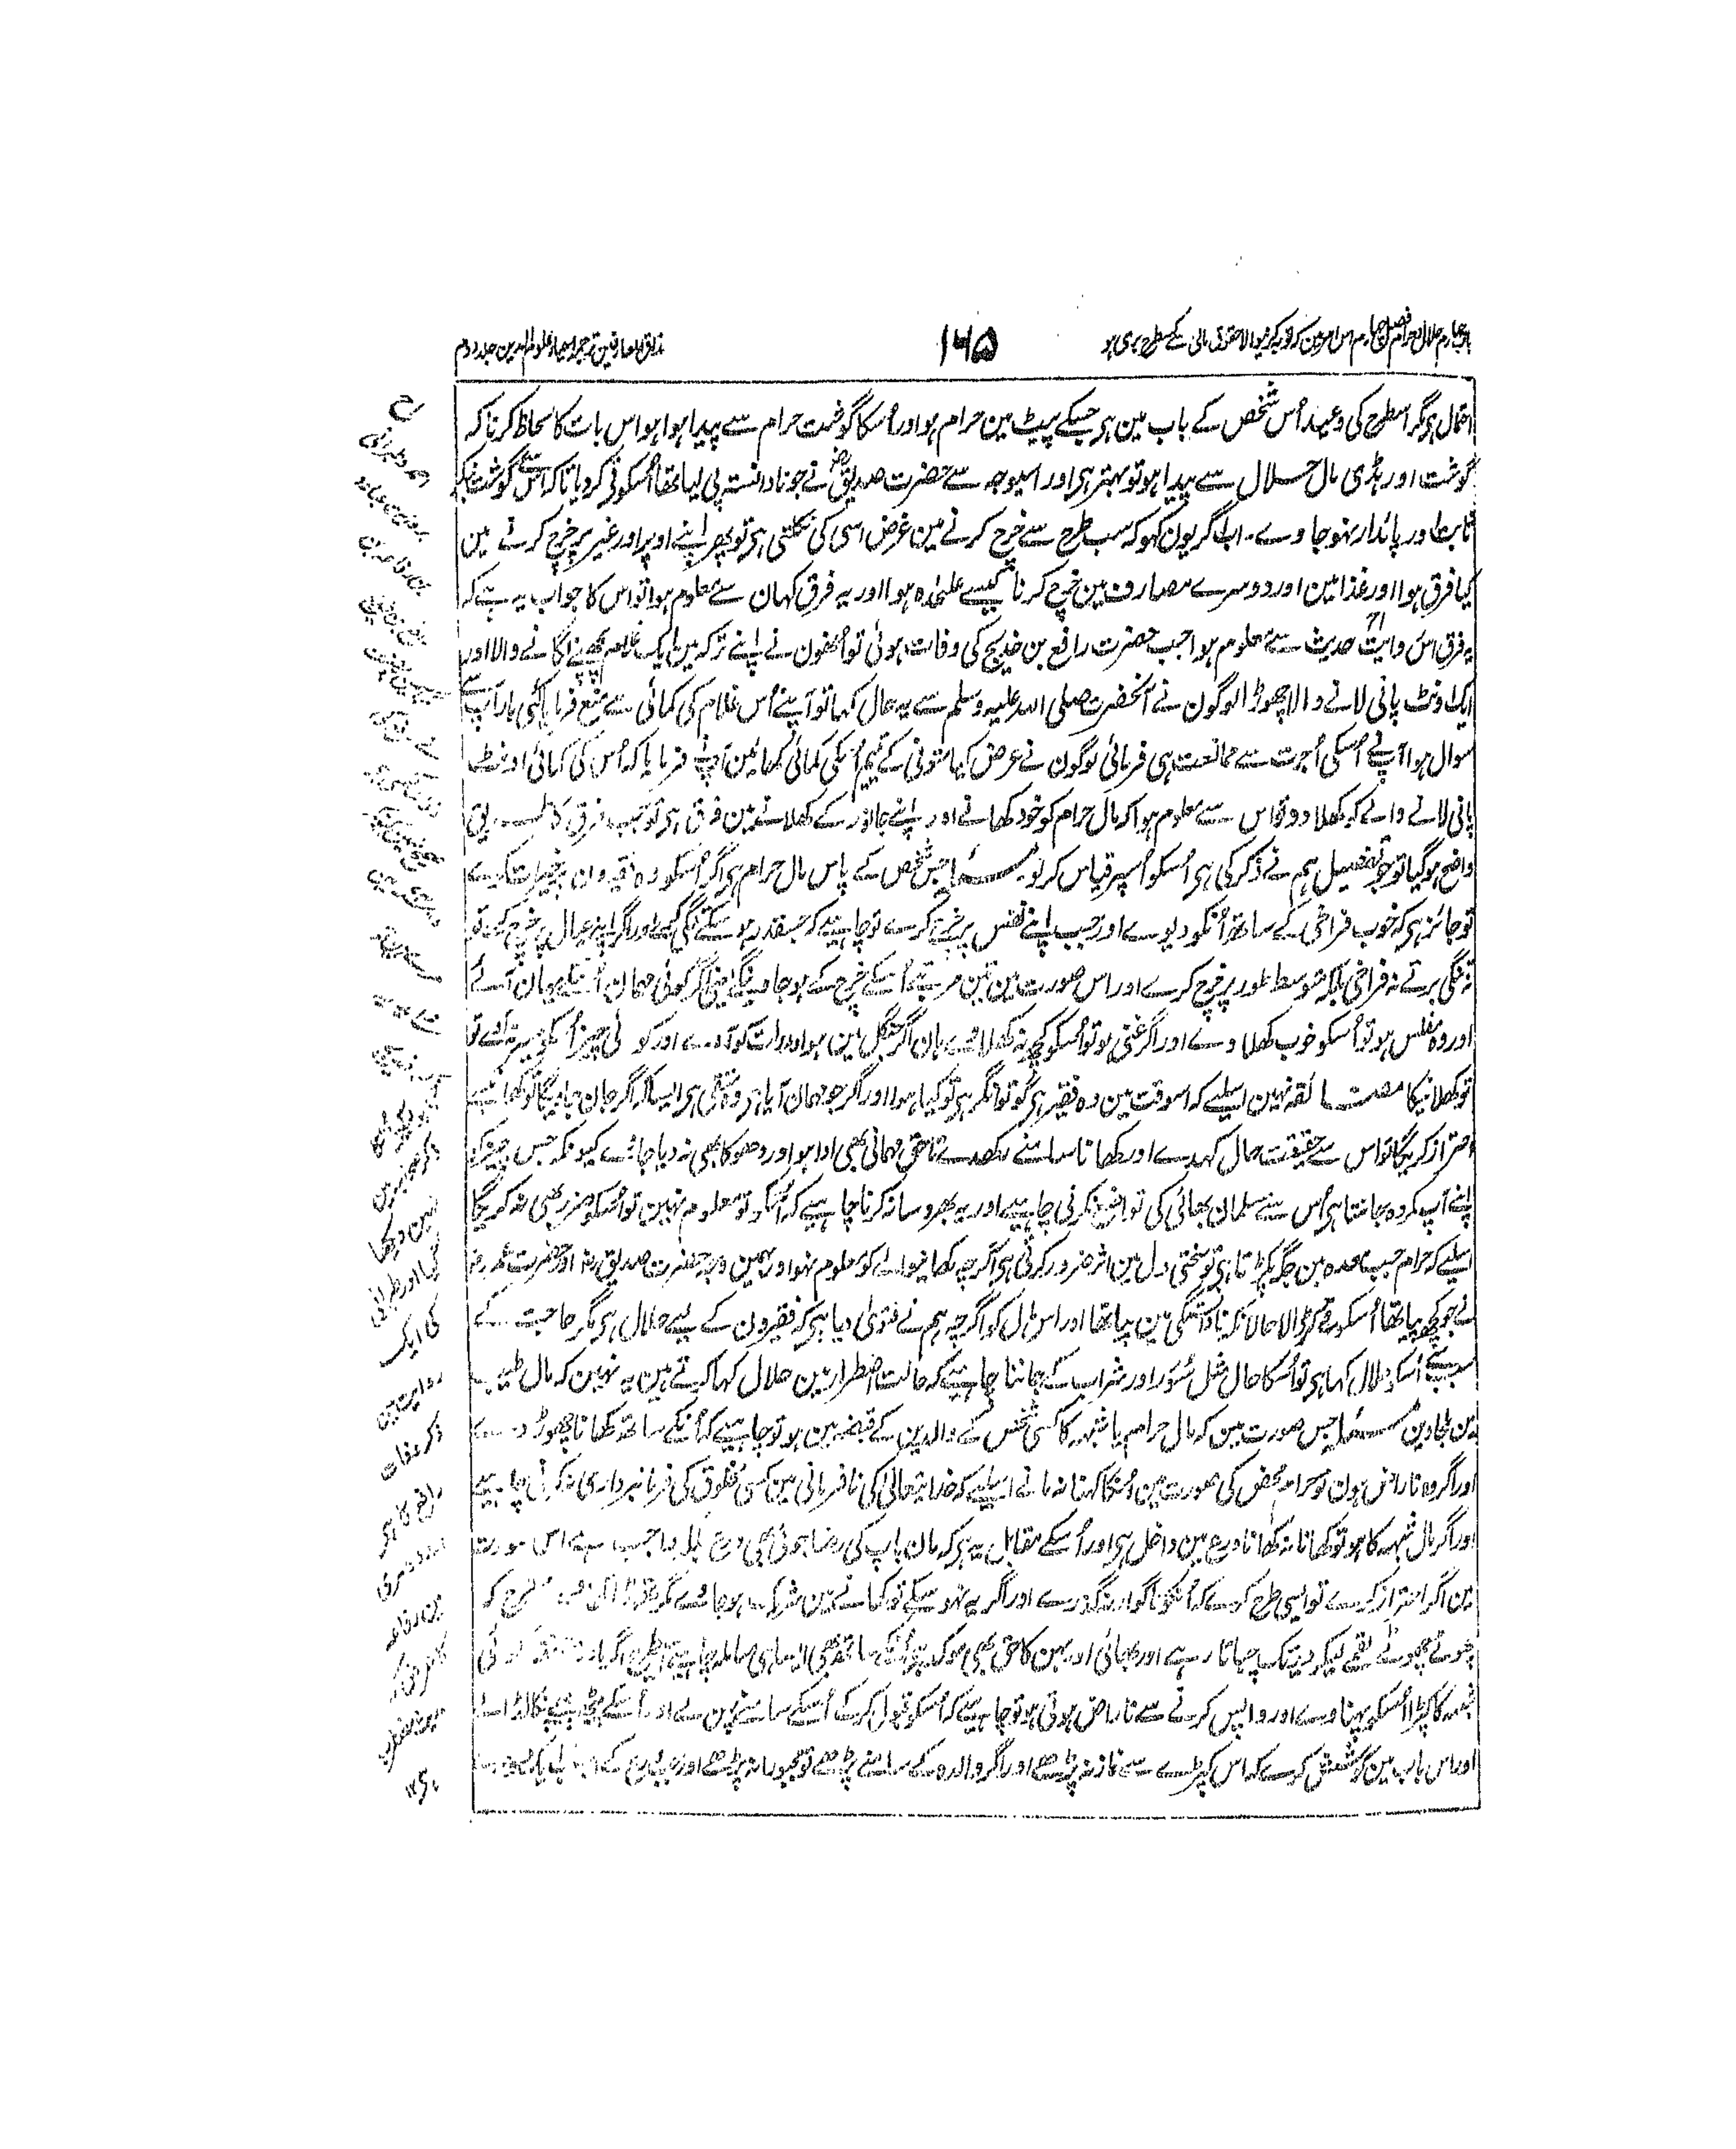 باب چہارم حلال و حرام فصل چہارم اس امر مین کہ توبہ کرنیوالا حقوق مالی سے کسطرح بری ہو
۱۶۵
مذاق العارفین ترجمہ احیاء علوم الدین جلد دوم
احتمال ہی مگر اسطرح کی وعید اُس شخص کے باب مین ہر جسکے پیٹ مین حرام ہو اور اُسکا گوشت حرام سے پیدا ہوا ہو اس بات کا لحاظ کرنا کہ
گوشت اور ہڈی مال حلال سے پیدا ہو تو بہتر ہی اور اسیوجہ سے حضرت صدیق رض نے جو نادانستہ پی لیا تھا اُسکو قی کر دیا تاکہ اُس سے گوشت
ثابت اور پائدار نہو جاوے۔ اب اگر یون کہو کہ سب طرح سے خرچ کرنے مین غرض اسی کی نکلتی ہی تو پھر اپنے اوپر اور غیر پر خرچ کرنے مین
کیا فرق ہوا اور غذا مین اور دوسرے مصارف مین خرچ کرنا کیسے علیحدہ ہوا اور یہ فرق کہان سے معلوم ہوا تو اس کا جواب یہ ہے کہ
یہ فرق اس روایت حدیث سے معلوم ہوا جب حضرت رافع بن خدیج کی وفات ہوئی تو اُنھون نے اپنے ترکہ مین ایک غلام پچھنے لگانے والا اور
ایک اونٹ پانی لانے والا چھوڑا لوگون نے آنحضرت صلی اللہ علیہ وسلم سے یہ حال کہا تو آپنے اُس غلام کی کمائی سے منع فرمایا کئی بار آپ سے
سوال ہوا آپنے اُسکی اُجرت سے ممانعت ہی فرمائی لوگون نے عرض کیا متوفی کے یتیم اُسکی کمائی کھائین آپنے فرمایا کہ اُس کی کمائی اونٹ
پانی لانے والے کو کھلا دو تو اس سے معلوم ہوا کہ مال حرام کو خود کھانے اور اپنے جانور کے کھلانے مین فرق ہی تو جب فرق کا طریق
واضح ہوگیا تو جو تفصیل ہم نے ذکر کی ہی اُسکو اُسپر قیاس کر لو مسئلہ جس شخص کے پاس مال حرام ہی اگر اُسکو وہ فقیرون پر خیرات کرے
تو جائز ہی کہ خوب فراخی کے ساتھ اُنکو دیوے اور جب اپنے نفس پر خرچ کرے تو چاہیے کہ جسقدر ہو سکے تنگی کرے اور اگر اپنے عیال پر خرچ کرے تو
نہ تنگی برتے نہ فراخی بلکہ متوسط طور پر خرچ کرے اور اس صورت مین تین مرتبے اُسکے خرچ کے ہو جاوینگے یعنی اگر کوئی مہمان اُسکے یہان آئے
اور وہ مفلس ہو تو اُسکو خوب کھلاوے اور اگر غنی ہو تو اُسکو کچھ نہ کھلاوے ہان اگر جنگل مین ہو اور رات کو آوے اور کوئی چیز اُسکو میسر نہ آوے
تو کھلانیکا مضائقہ نہین اسلیے کہ اسوقت مین وہ فقیر ہی گو تونگر ہی تو کیا ہوا اور اگر جو مہمان آیا ہی وہ متقی ہی ایسا کہ اگر جان جاویگا تو کھانے سے
احتراز کریگا تو اس سے حقیقت حال کہدے اور کھانا سامنے رکھدے تاحق مہمانی بھی ادا ہو اور دھوکا بھی نہ دیا جائے کیونکہ جس چیز کو
اپنے آپ مکروہ جانتا ہی اُس سے مسلمان بھائی کی تواضع نکرنی چاہیے اور یہ بھروسا نہ کرنا چاہیے کہ اُسکو تو معلوم نہین تو اُسکو ضرر بھی نہ کریگا
اسلیے کہ حرام جب معدہ مین جگہ پکڑتا ہی تو سختی دل مین اثر ضرور کرتی ہی اگرچہ کھانیوالے کو معلوم نہو اور بہمین وجہ حضرت صدیق رض اور حضرت عمر رض
نے جو کچھ پیا تھا اُسکو قے کر ڈالا حالانکہ نادانستگی مین پیا تھا اور اس مال کو اگرچہ ہم نے فتوی دیا ہی کہ فقیرون کے لیے حلال ہی مگر حاجت کے
سبب سے اُسکو حلال کہا ہی تو اُسکا حال مثل سُوَر اور شراب کے جاننا چاہیے کہ حالت اضطرار مین حلال کہا کرتے ہین یہ نہین کہ مال طیب
بن جاوین مسئلہ جس صورت مین کہ مال حرام یا شبہہ کا کسی شخص کے والدین کے قبضہ مین ہو تو چاہیے کہ اُنکے ساتھ کھانا چھوڑ دے
اور اگر وہ ناراض ہون تو حرام محض کی صورت مین اُنکا کہنا نہ مانے اسلیے کہ خدایتعالی کی نافرمانی مین کسی مخلوق کی فرمانبرداری نہ کرنی چاہیے
اور اگر مال شبہہ کا ہو تو کھانا نہ کھانا ورع مین داخل ہی اور اُسکے مقابل یہ ہی کہ مان باپ کی رضا جوئی بھی ورع بلکہ واجب ہے اس صورت
مین اگر احتراز کرے تو ایسی طرح کرے کہ اُنکو ناگوار نہ گذرے اور اگر یہ نہو سکے تو کھانے مین شریک ہو جاوے مگر تھوڑا
چھوٹے چھوٹے لقمے لیکر دیر تک چباتا رہے اور بھائی اور بہن کا حق بھی موکد ہی اُنکے ساتھ بھی ایسا ہی معاملہ چاہیے اسی طرح اگر والدہ کوئی
شبہہ کا کپڑا اُسکو پہناوے اور واپس کرنے سے ناراض ہوتی ہو تو چاہیے کہ اُسکو قبول کرکے اُسکے سامنے پہن لے اور اُسکے پیچھے نکال ڈالے
اور اس باب مین کوشش کرے کہ اس کپڑے سے نماز نہ پڑھے اور اگر والدہ کے سامنے پڑھے تو مجبورانہ پڑھے
ح
احمد و طبرانی
نہین دیکھا
کیا اور طبرانی
کی ایک
روایت مین
ذکر وفات
رافع کا ہی